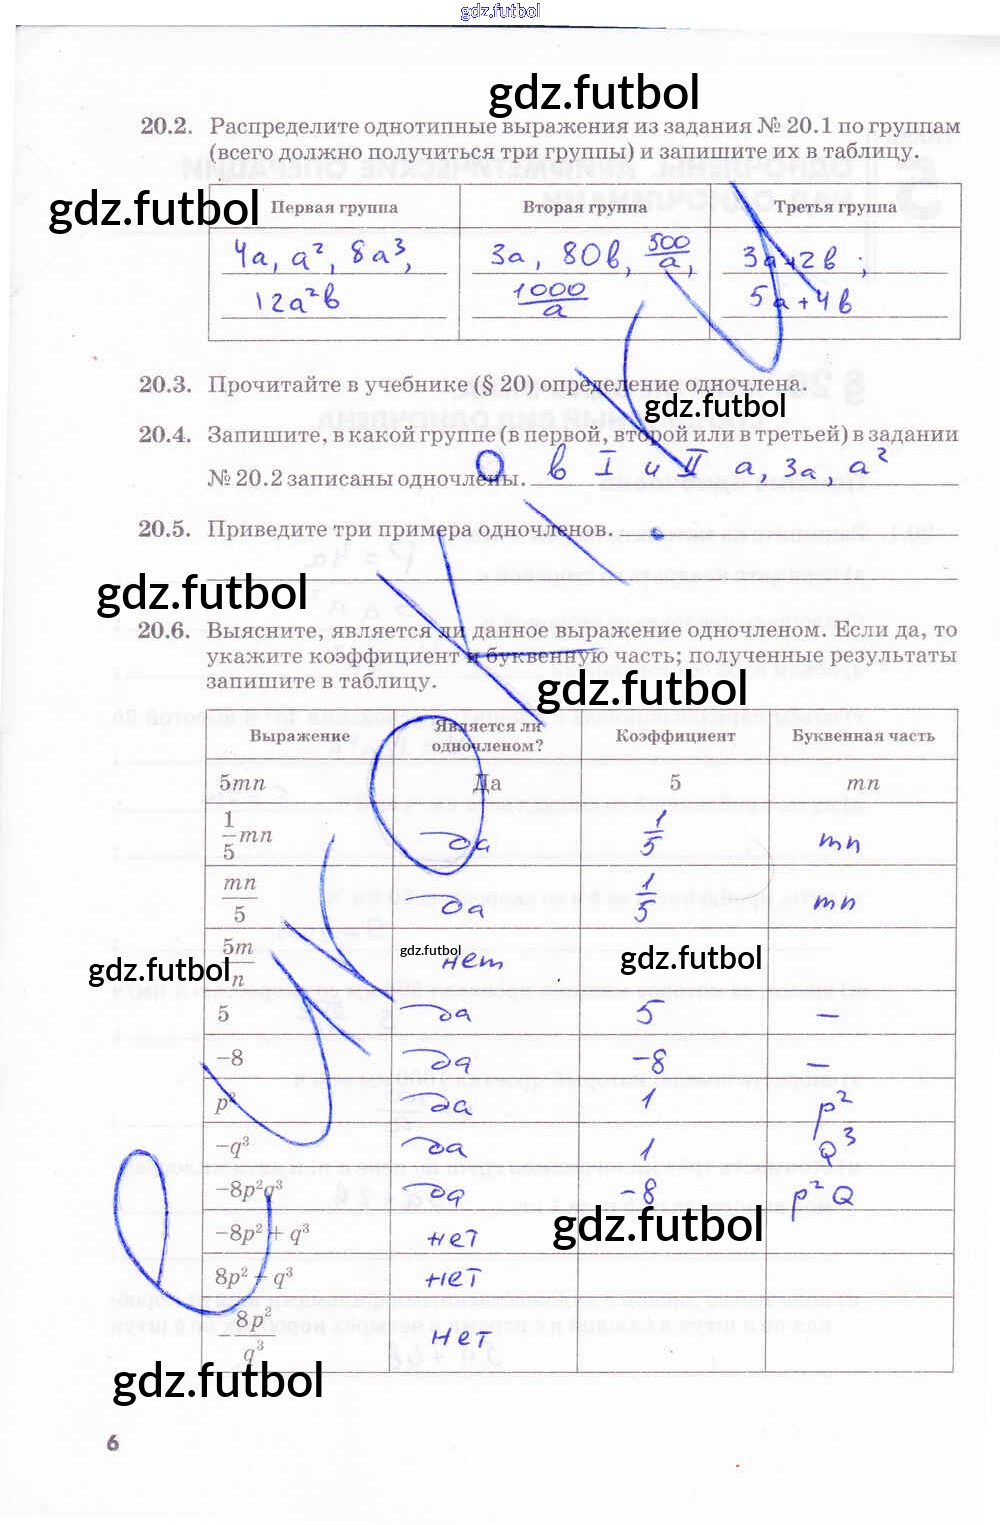 gdz.futbol
gdz.futbol
20.2. Распределите однотипные выражения из задания № 20.1 по группам
(всего должно получиться три группы) и запишите их в таблицу.
gdz.futbol
Первая группа Вторая группа Третья группа
4a, a², 8a³, 3a, 80b, 500/a, 3a+2b ;
12a²b 1000/a 5a+4b
20.3. Прочитайте в учебнике (§ 20) определение одночлена.
gdz.futbol
20.4. Запишите, в какой группе (в первой, второй или в третьей) в задании
№ 20.2 записаны одночлены. в I и II a, 3a, a²
20.5. Приведите три примера одночленов.
gdz.futbol
20.6. Выясните, является ли данное выражение одночленом. Если да, то
укажите коэффициент и буквенную часть; полученные результаты
запишите в таблицу.
gdz.futbol
Выражение Является ли одночленом? Коэффициент Буквенная часть
5mn Да 5 mn
1/5 mn да 1/5 mn
mn/5 да 1/5 mn
5m/n нет
gdz.futbol gdz.futbol gdz.futbol
5 да 5 —
−8 да −8 —
p² да 1 p²
−q³ да 1 Q³
−8p²q³ да −8 p²Q
gdz.futbol
−8p² + q³ нет
8p² − q³ нет
−8p²/q³ нет
gdz.futbol
6